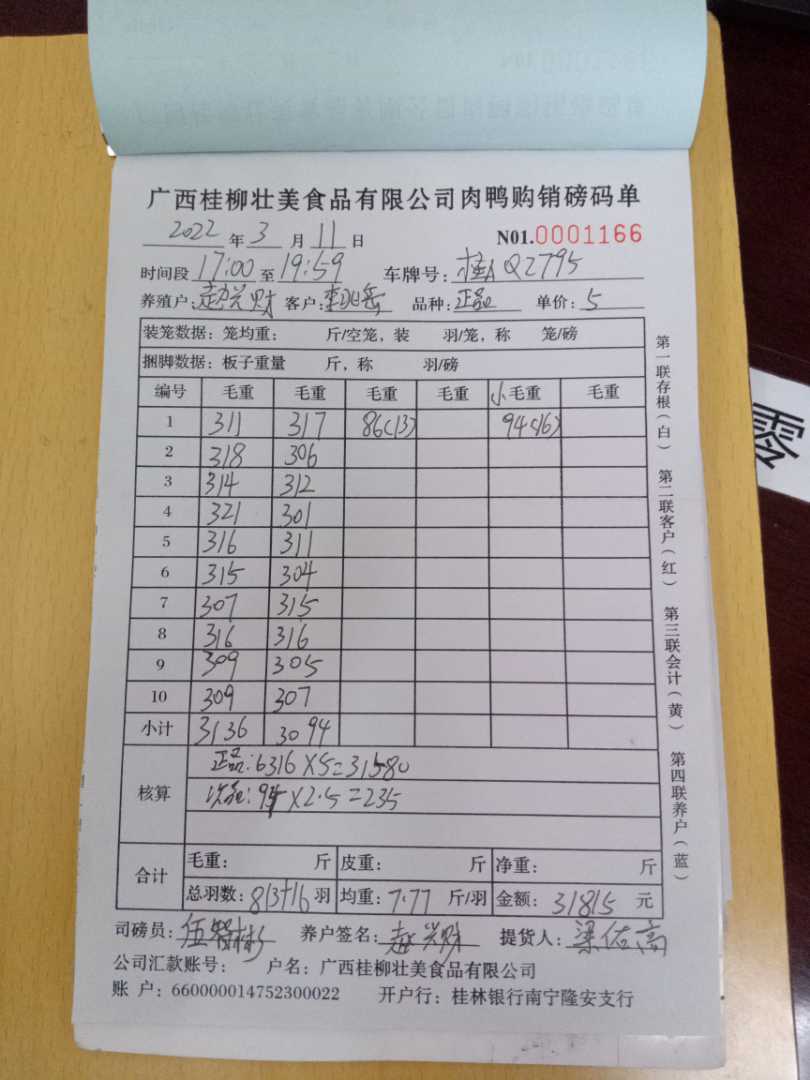 广西桂柳壮美食品有限公司肉鸭购销磅码单
2022 年 3 月 11 日 N01.0001166
时间段 17:00 至 19:59 车牌号: 桂A Q2795
养殖户: 赵兴财 客户: 品种: 正品 单价: 5
装笼数据: 笼均重: 斤/空笼, 装 羽/笼, 称 笼/磅
捆脚数据: 板子重量 斤, 称 羽/磅
编号 毛重 毛重 毛重 毛重 小毛重 毛重
1 311 317 86(13) 94(16)
2 318 306
3 314 312
4 321 301
5 316 311
6 315 304
7 307 315
8 316 316
9 309 305
10 309 307
小计 3136 3094
核算 正品:6316×5=31580
次品:94×2.5=235
合计 毛重: 斤 皮重: 斤 净重: 斤
总羽数: 813+16 羽 均重: 7.77 斤/羽 金额: 31815 元
司磅员: 养户签名: 赵兴财 提货人: 梁佑高
公司汇款账号: 户名: 广西桂柳壮美食品有限公司
账 户: 660000014752300022 开户行: 桂林银行南宁隆安支行
第一联存根(白) 第二联客户(红) 第三联会计(黄) 第四联养户(蓝)
零